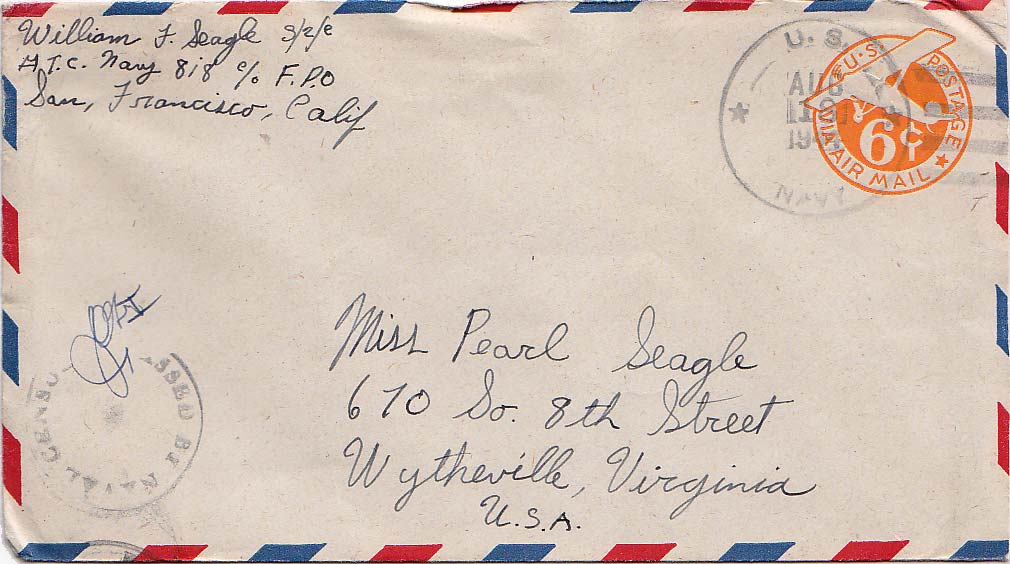 William F. Seagle S/2/c
A.T.C. Navy 818 c/o F.P.O
San, Francisco, Calif
U.S.
AUG
194
NAVY
U.S. POSTAGE
6¢
VIA AIR MAIL
Miss Pearl Seagle
670 So. 8th Street
Wytheville, Virginia
U.S.A.
PASSED BY NAVAL CENSOR